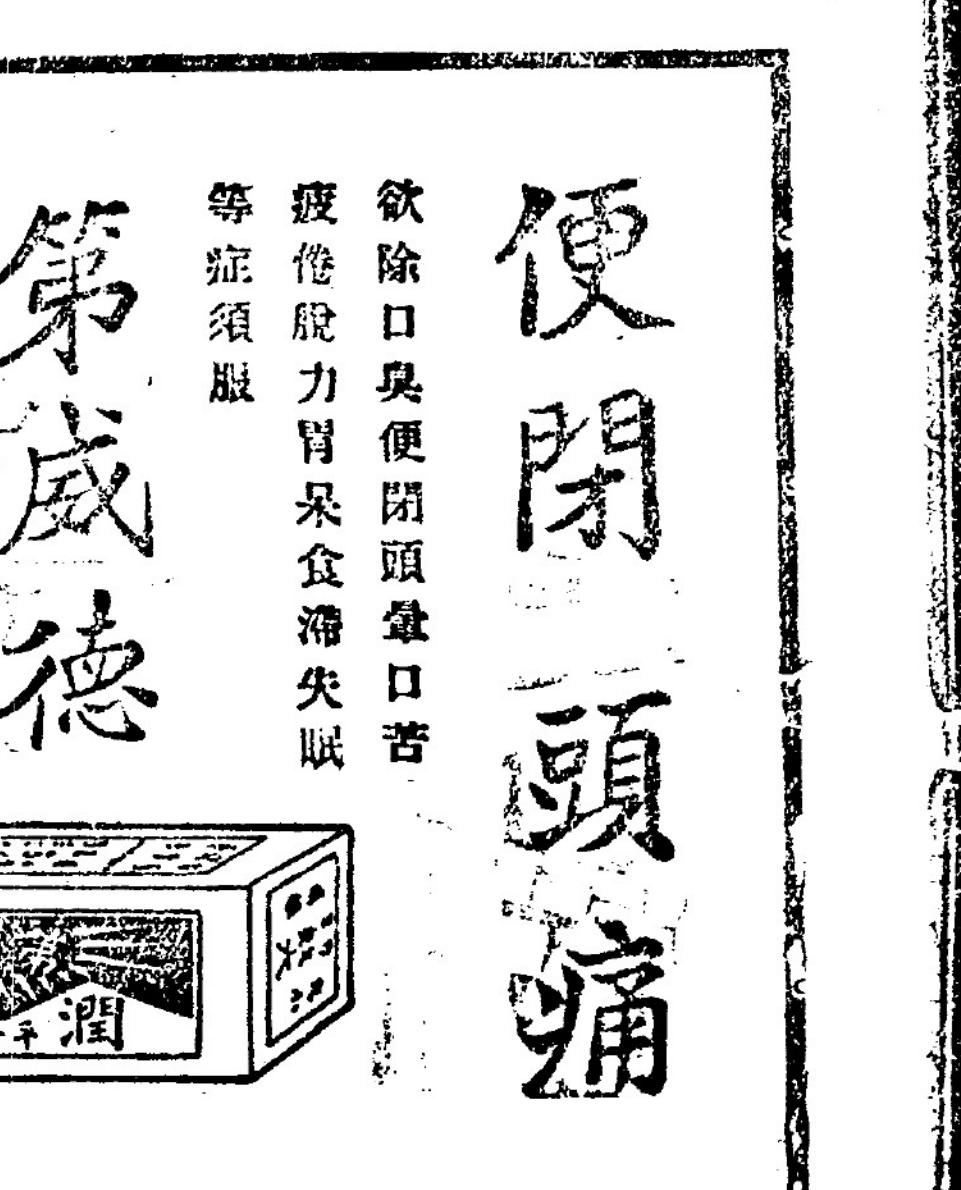 便閉頭痛
欲除口臭便閉頭暈口苦
疲倦脫力胃呆食滯失眠
等症須服
第威德
潤
平